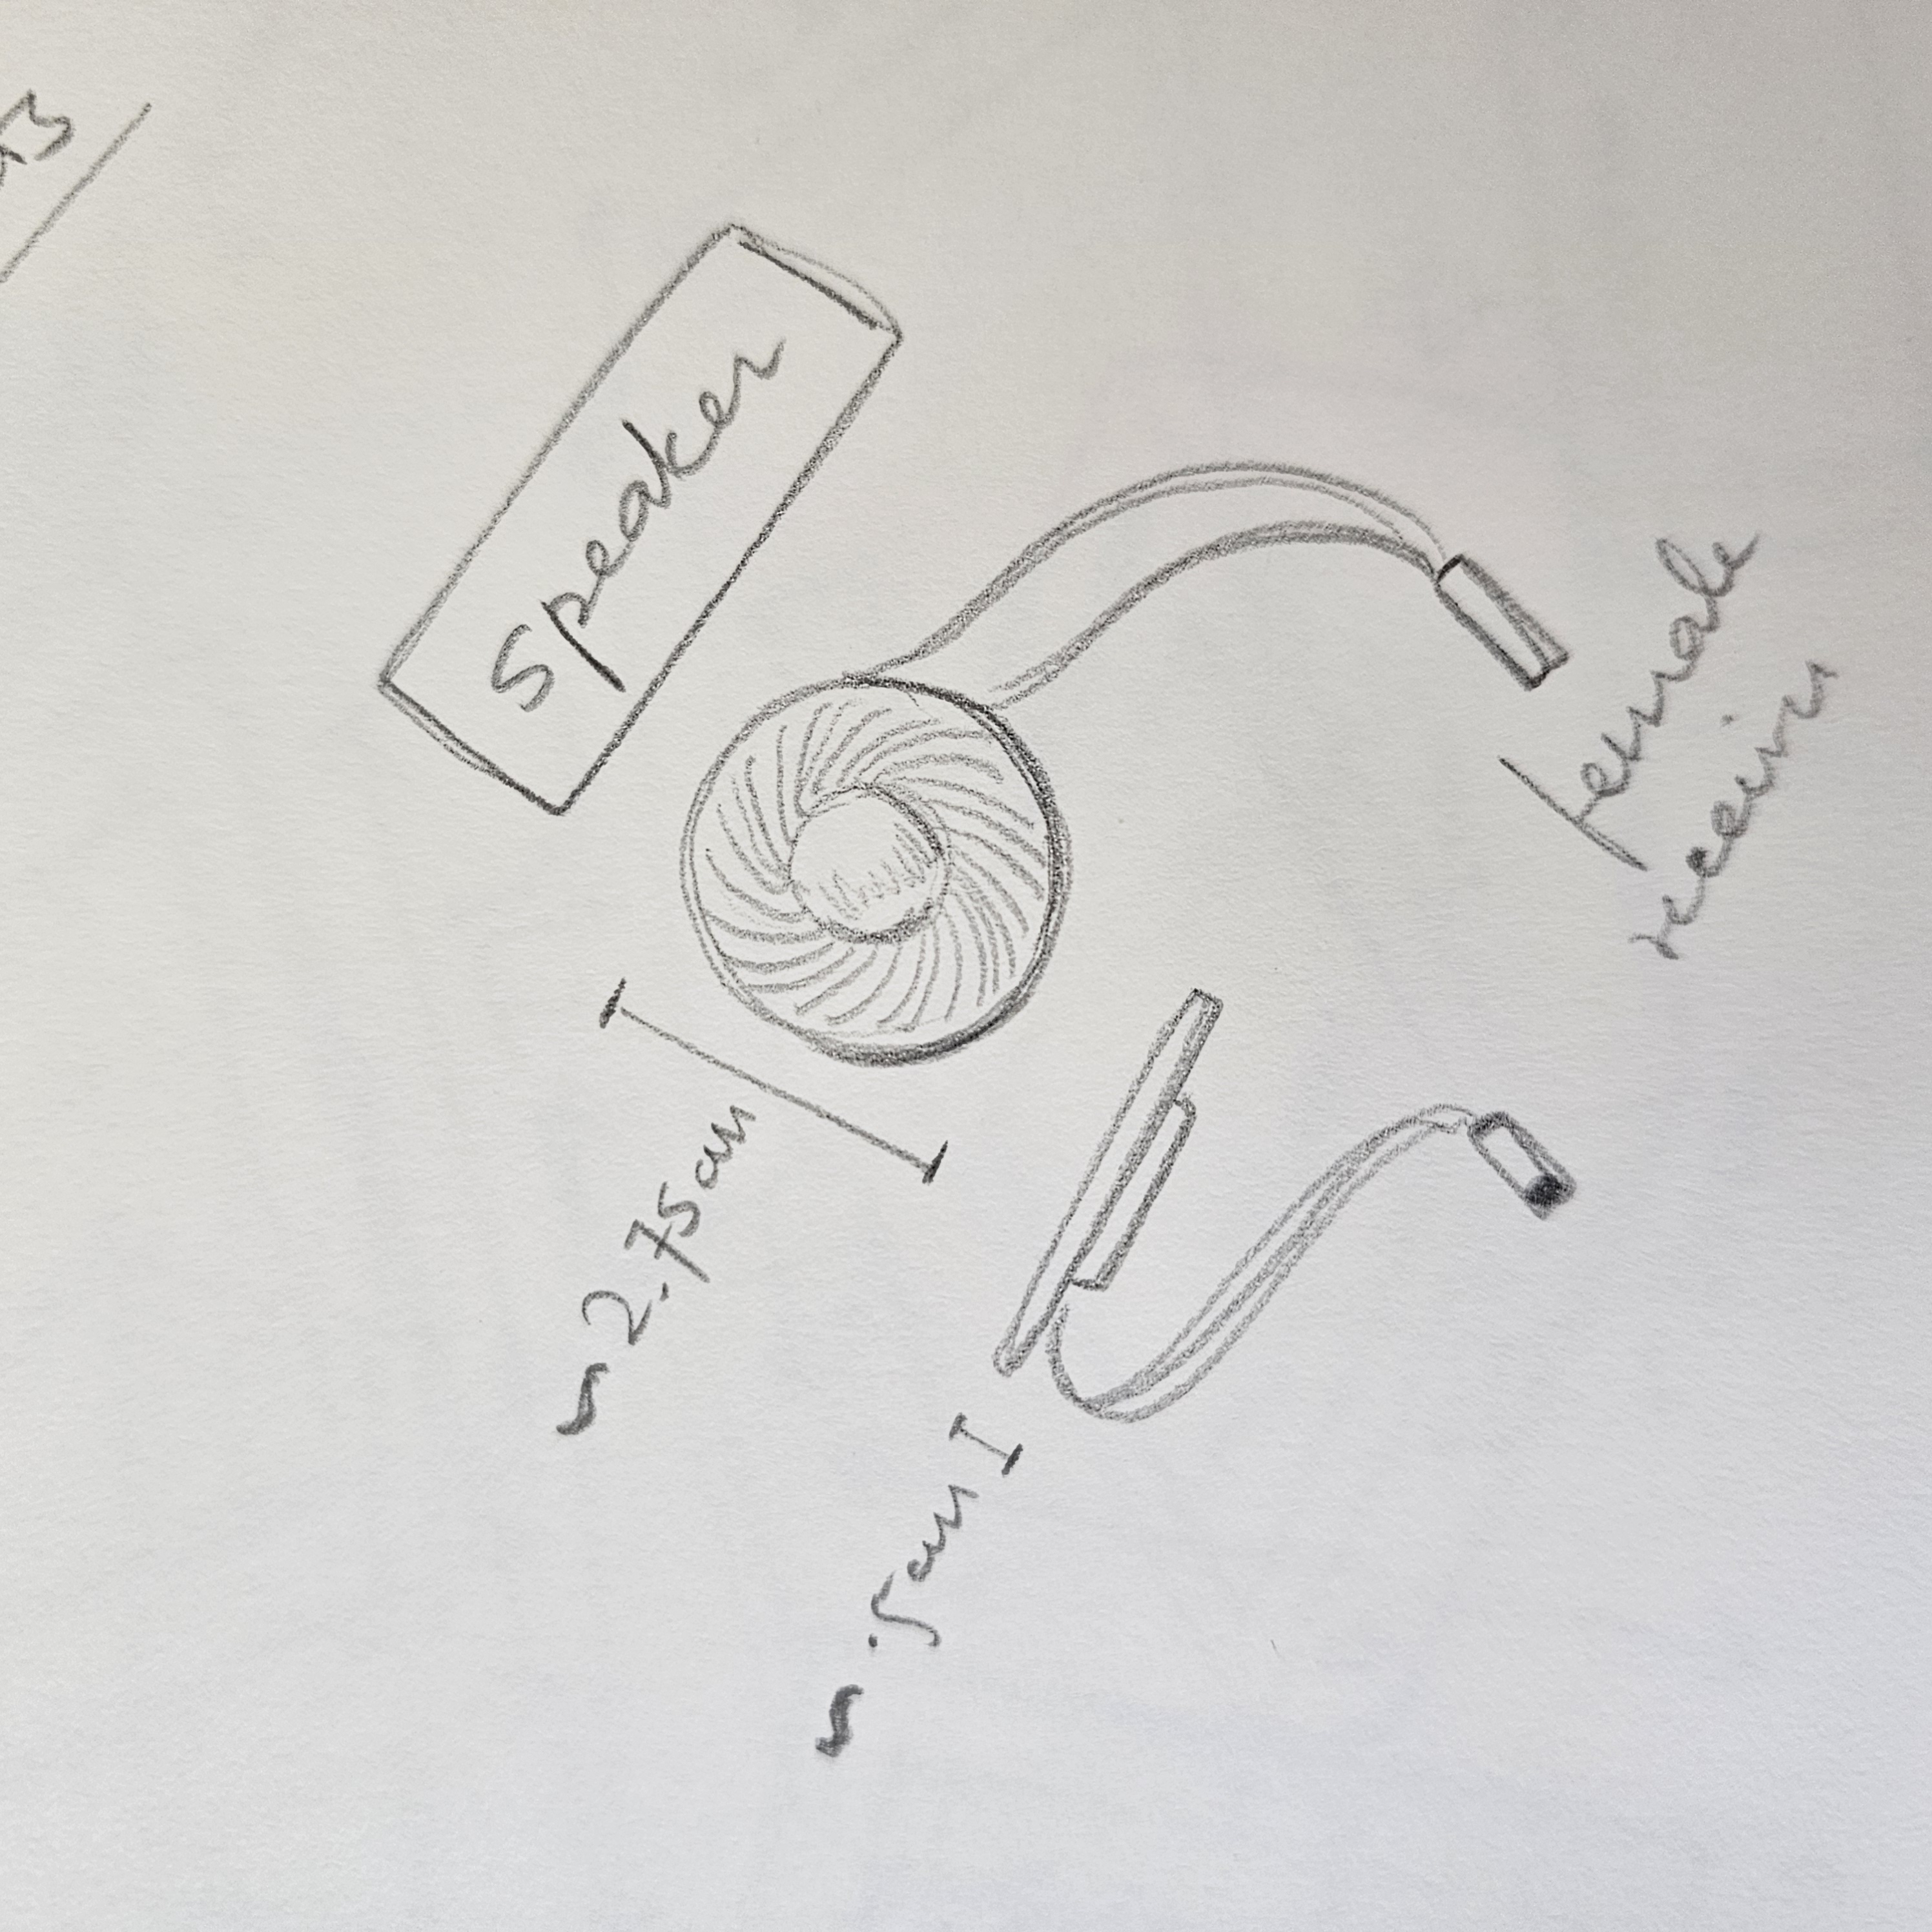 speaker
~2.75cm
~.5cm
female
receiver